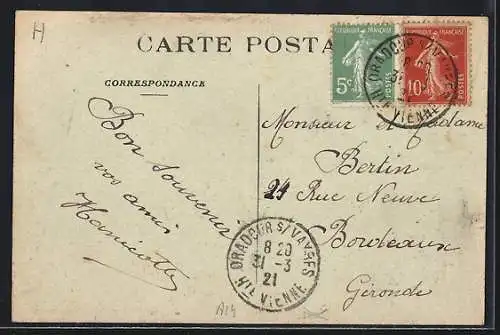 H
CARTE POSTA
CORRESPONDANCE
RÉPUBLIQUE FRANÇAISE
5c
POSTES
10c
POSTES
ORADOUR S/VAYRES
8 20
31
HTE VIENNE
Monsieur et Madame
Bertin
24 Rue Neuve
Bordeaux
Gironde
Bon souvenir
vos amis
ORADOUR S/VAYRES
8 20
31 -3
21
HTE VIENNE